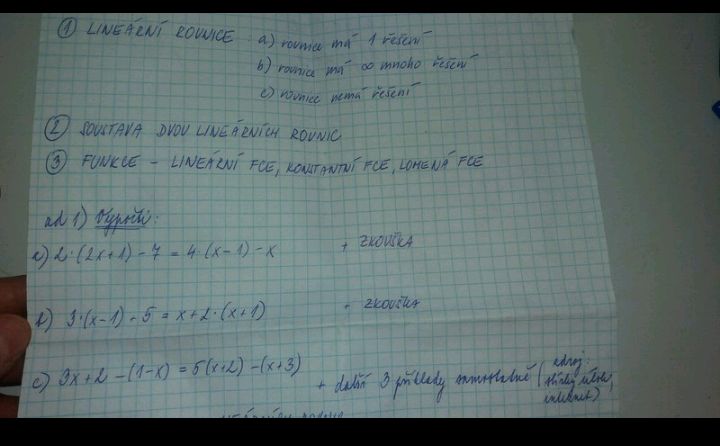 ① LINEÁRNÍ ROVNICE a) rovnice má 1 řešení
b) rovnice má ∞ mnoho řešení
c) rovnice nemá řešení
② SOUSTAVA DVOU LINEÁRNÍCH ROVNIC
③ FUNKCE – LINEÁRNÍ FCE, KONSTANTNÍ FCE, LOMENÁ FCE
ad 1) Vypočti:
a) 2·(2x+1) - 7 = 4·(x-1) - x + ZKOUŠKA
b) 3·(x-1) - 5 = x+2·(x+1) - ZKOUŠKA
c) 3x+2 -(1-x) = 5(x+2) -(x+3)
+ další 3 příklady samostatně (zdroj:
sbírky úloh,
internet)